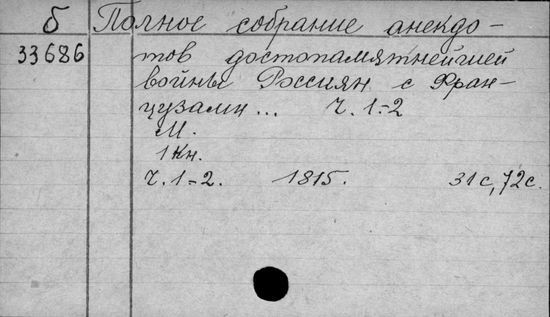 б Полное собрание анекдо-
33686 тов достопамятнейшей
войны Россиян с Фран-
цузами... ч. 1-2
М.
1 Кн.
ч. 1-2. 1815. 31 с, 72 с.